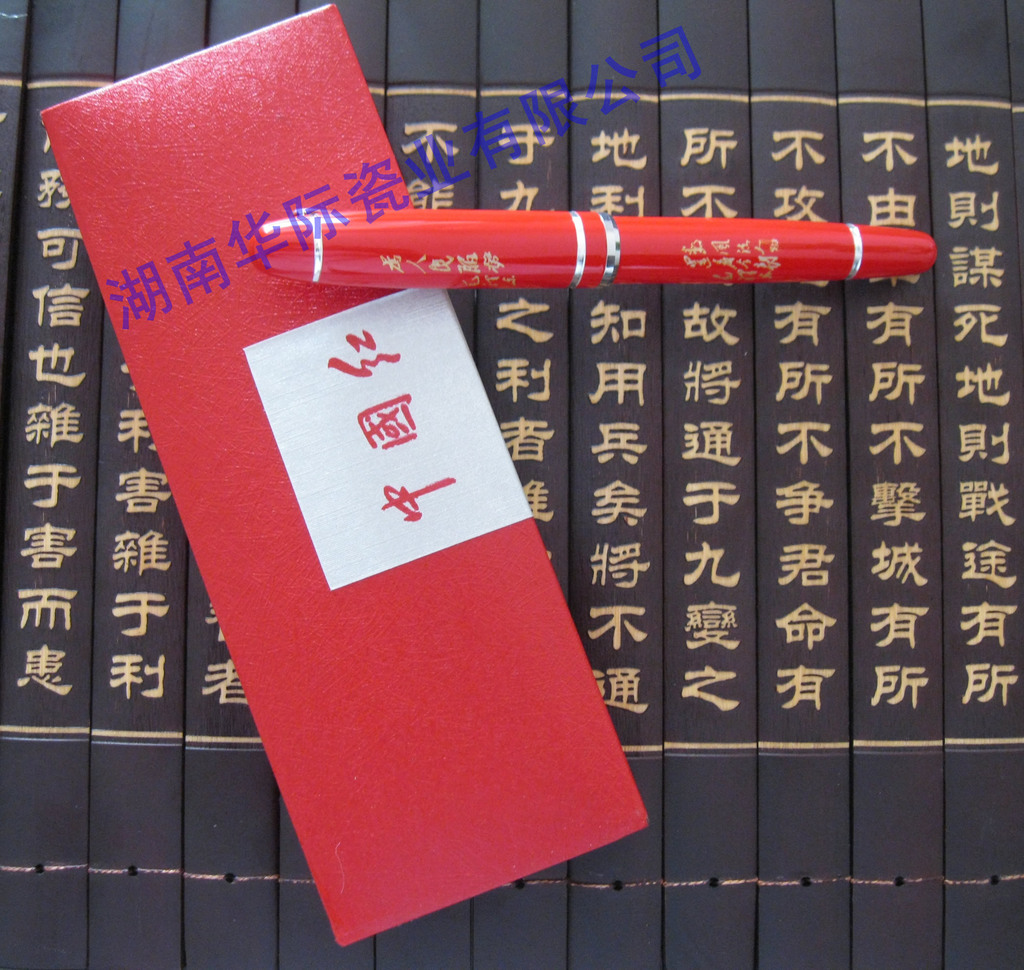 湖南华际瓷业有限公司
中國红
为人民服務
地則謀死地則戰途有所
不由有所不擊城有所
不攻有所不争君命有
所不故將通于九變之
地利知用兵矣將不通
于九之利者雖
不能
者
利害雜于利
務可信也雜于害而患